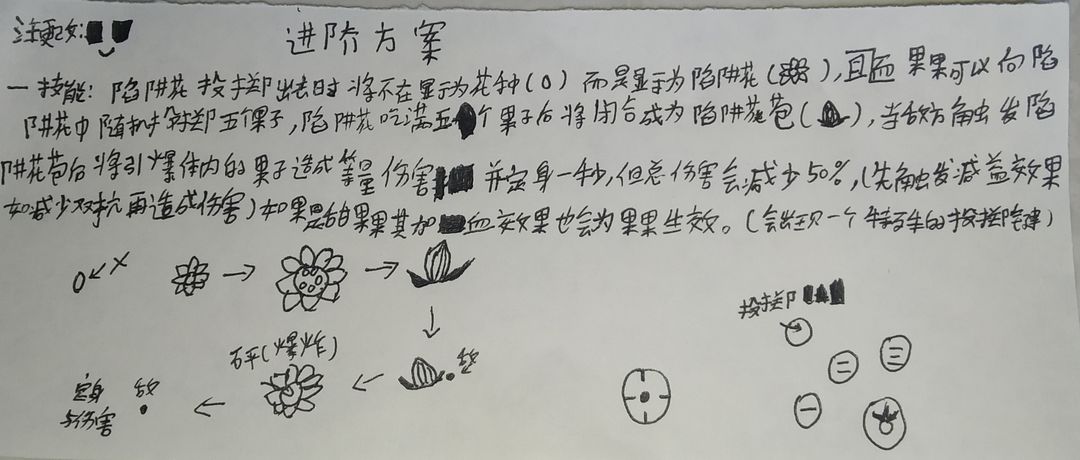 进阶方案
一技能：陷阱花投掷出去时将不在显示为花种(0)而是显示为陷阱花( )，且 果果可以向陷
阱花中随机投掷五个果子，陷阱花吃满五个果子后将闭合成为陷阱花苞( )，当敌方触发陷
阱花苞后将引爆体内的果子造成等量伤害 并定身一秒，但总伤害会减少50%，(先触发减益效果
如减少双抗再造成伤害)如果 果果其加血效果也会为果果生效。(会出现一个 的投掷 建)
投掷
(爆炸) 敌
三
二
定身 敌
与伤害
一